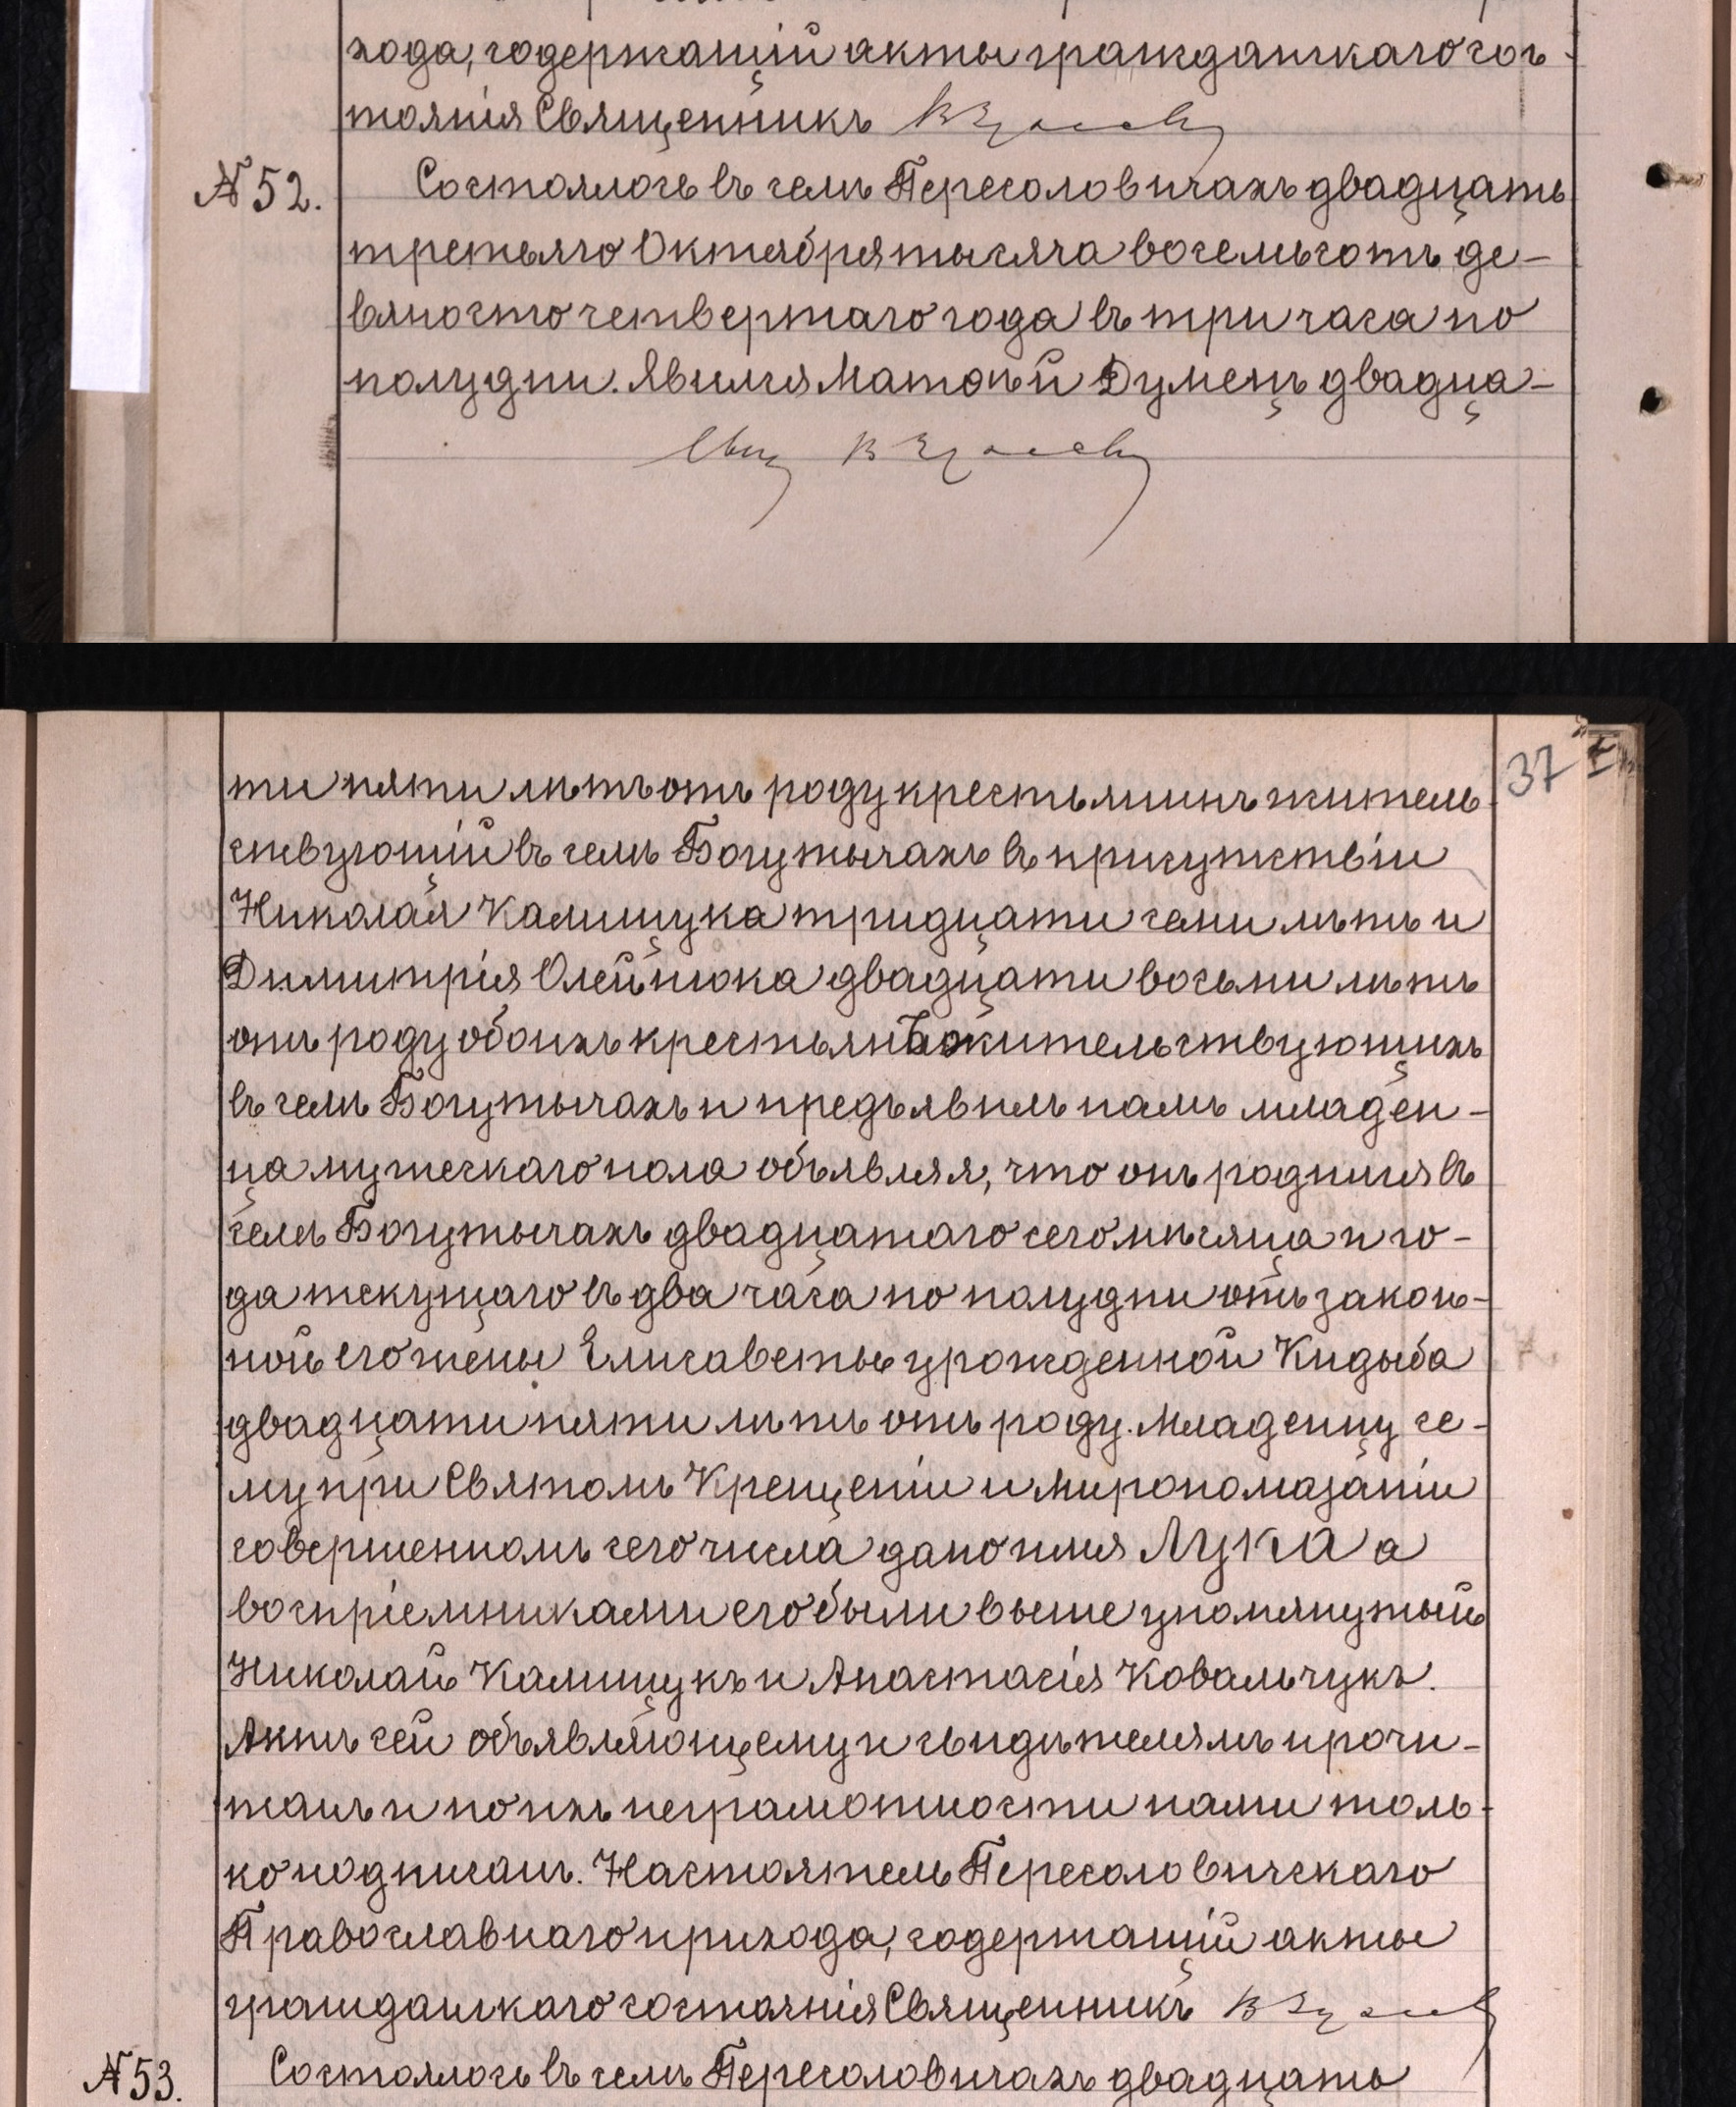 хода, содержащій акты гражданскаго сос-
тоянія Священникъ
N 52.
Состоялось въ селѣ Пересоловичахъ двадцать
третьяго Октября тысяча восемьсотъ де-
вяносто четвертаго года въ три часа по
полудни. Явился Матѳей Думецъ двадца-
Свящ
37
ти пяти лѣтъ отъ роду крестьянинъ житель
ствующій въ селѣ Богутычахъ въ присутствіи
Николая Калищука тридцати семи лѣтъ и
Димитрія Олейнюка двадцати восьми лѣтъ
отъ роду обоихъ крестьянъ жительствующихъ
въ селѣ Богутычахъ и предъявилъ намъ младен-
ца мужескаго пола объявляя, что онъ родился въ
селѣ Богутычахъ двадцатаго сего мѣсяца и го-
да текущаго въ два часа по полудни отъ закон-
ной его жены Елисаветы урожденной Кидыба
двадцати пяти лѣтъ отъ роду. Младенцу се-
му при Святомъ Крещеніи и Миропомазаніи
совершенномъ сего числа дано имя Лука а
воспріемниками его были выше упомянутый
Николай Калищукъ и Анастасія Ковальчукъ.
Актъ сей объявляющему и свидѣтелямъ прочи-
танъ и по ихъ неграмотности нами толь-
ко подписанъ. Настоятель Пересоловичскаго
Православнаго прихода, содержащій акты
гражданскаго состоянія Священникъ
N 53.
Состоялось въ селѣ Пересоловичахъ двадцать